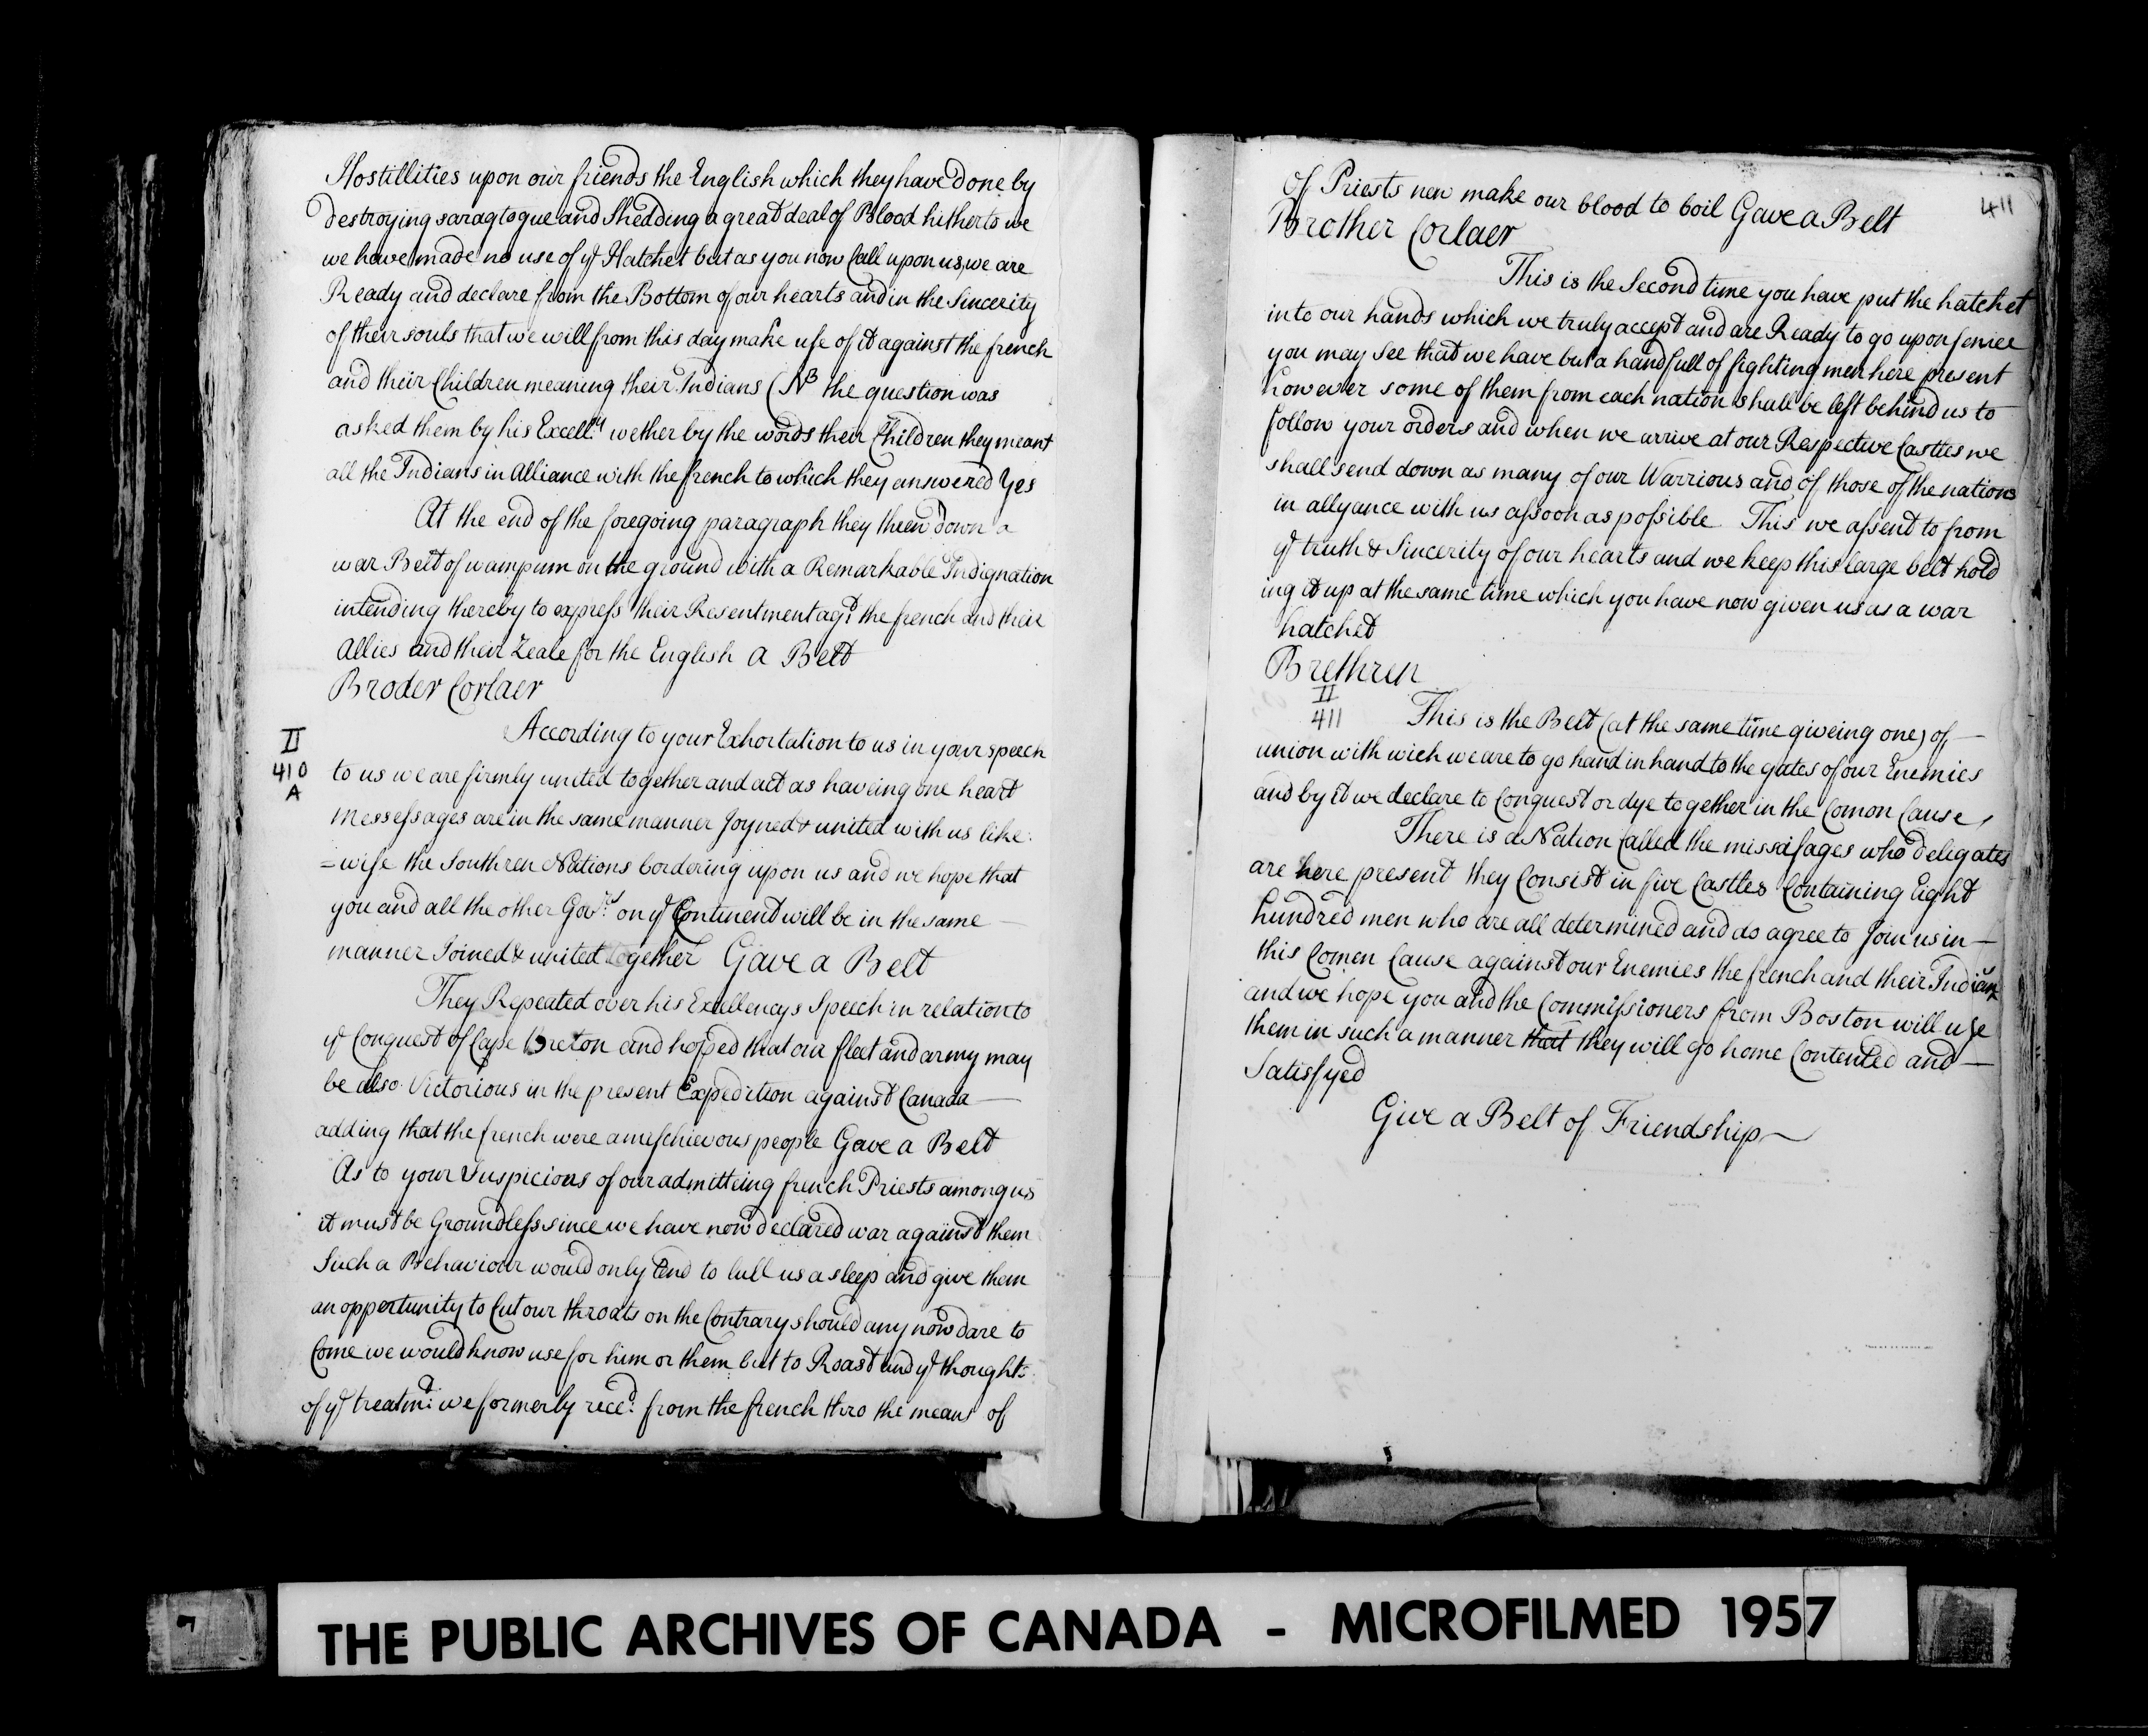 Hostillities upon our friends the English which they have done by
destroying saragtogue and Shedding a great deal of Blood hitherto we
we have made no use of ye Hatchet but as you now Call upon us, we are
Ready and declare from the Bottom of our hearts and in the Sincerity
of their souls that we will from this day make use of it against the french
and their Children meaning their Indians (NB the question was
asked them by his Excelly wether by the words their Children they meant
all the Indians in Alliance with the french to which they answered Yes
At the end of the foregoing paragraph they threw down a
war Belt of wampum on the ground with a Remarkable Indignation
intending thereby to express their Resentment agt the french and their
Allies and their Zeale for the English a Belt
Broder Corlaer
II
410
A
According to your Exhortation to us in your speech
to us we are firmly united together and act as haveing one heart
Messessages are in the same manner Joyned & united with us like:
=wise the Southren Nations bordering upon us and we hope that
you and all the other Govrs on ye Continent will be in the same —
manner Joined & united together Gave a Belt
They Repeated over his Exellencys Speech in relation to
ye Conquest of Cape Breton and hopped that our fleet and army may
be also Victorious in the present Expedition against Canada —
adding that the french were a mischievous people Gave a Belt
As to your Suspicions of our admitteing french Priests among us
it must be Groundless since we have now declared war against them
Such a Behaviour would only tend to lull us a sleep and give them
an oppertunity to Cut our throats on the Contrary should any now dare to
Come we would know use for him or them but to Roast and ye thoughts
of ye treatmt: we formerly recd: from the french thro the means of
411
Of Priests new make our blood to boil Gave a Belt
Brother Corlaer
This is the Second time you have put the hatchet
into our hands which we truly accept and are Ready to go upon service
you may See that we have but a handfull of fighting men here present
however some of them from each nation shall be left behind us to
follow your orders and when we arrive at our Respective Castles we
shall send down as many of our Warriours and of those of the nations
in allyance with us assoon as possible This we assent to from
ye truth & Sincerity of our hearts and we keep this large belt hold
ing it up at the same time which you have now given us as a war
hatchet
Brethren
II
411
This is the Belt (at the same time giveing one) of —
union with wich we are to go hand in hand to the gates of our Enemies
and by it we declare to Conquest or dye together in the Comon Cause,
There is a Nation Called the missisages who deligates
are here present they Consist in five Castles Containing Eight
hundred men who are all determined and do agree to Join us in —
this Comen Cause against our Enemies the french and their Indians
and we hope you and the Commissioners from Boston will use
them in such a manner that they will go home Contented and —
Satisfyed
Give a Belt of Friendship —
THE PUBLIC ARCHIVES OF CANADA - MICROFILMED 1957